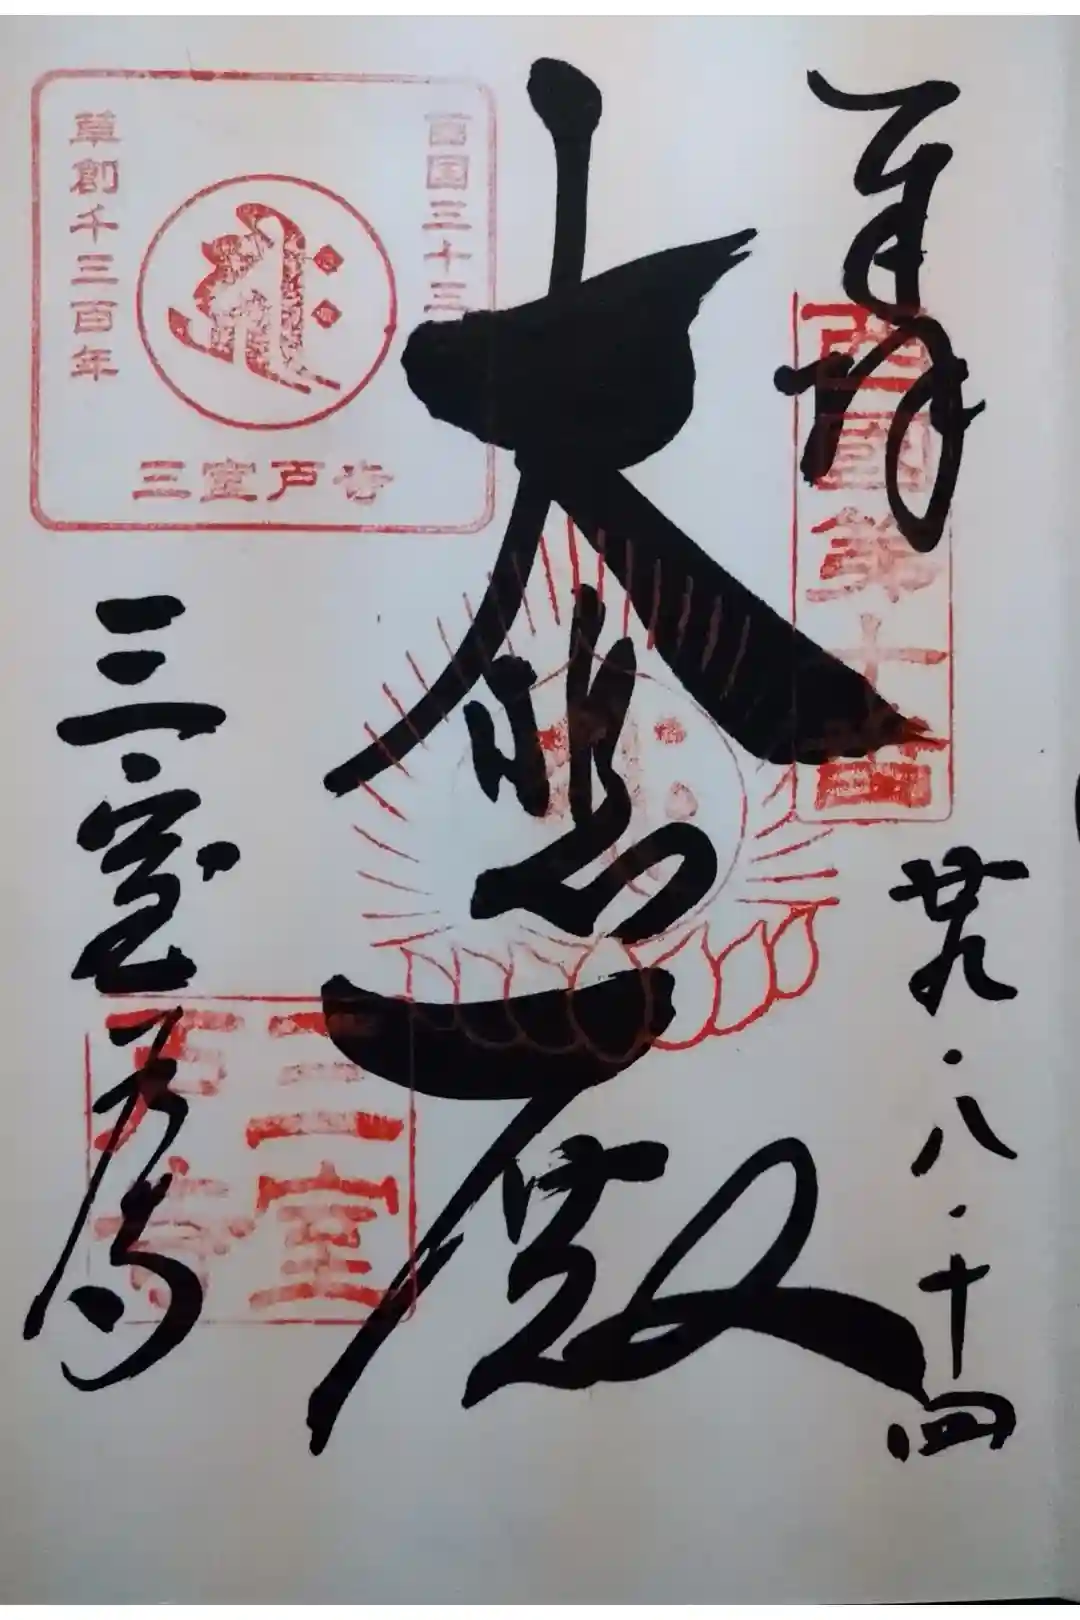 奉拝
西國第十番
廿九・八・十四
大悲殿
西国三十三
草創千三百年
三室戸寺
三室戸寺
三室
戸寺